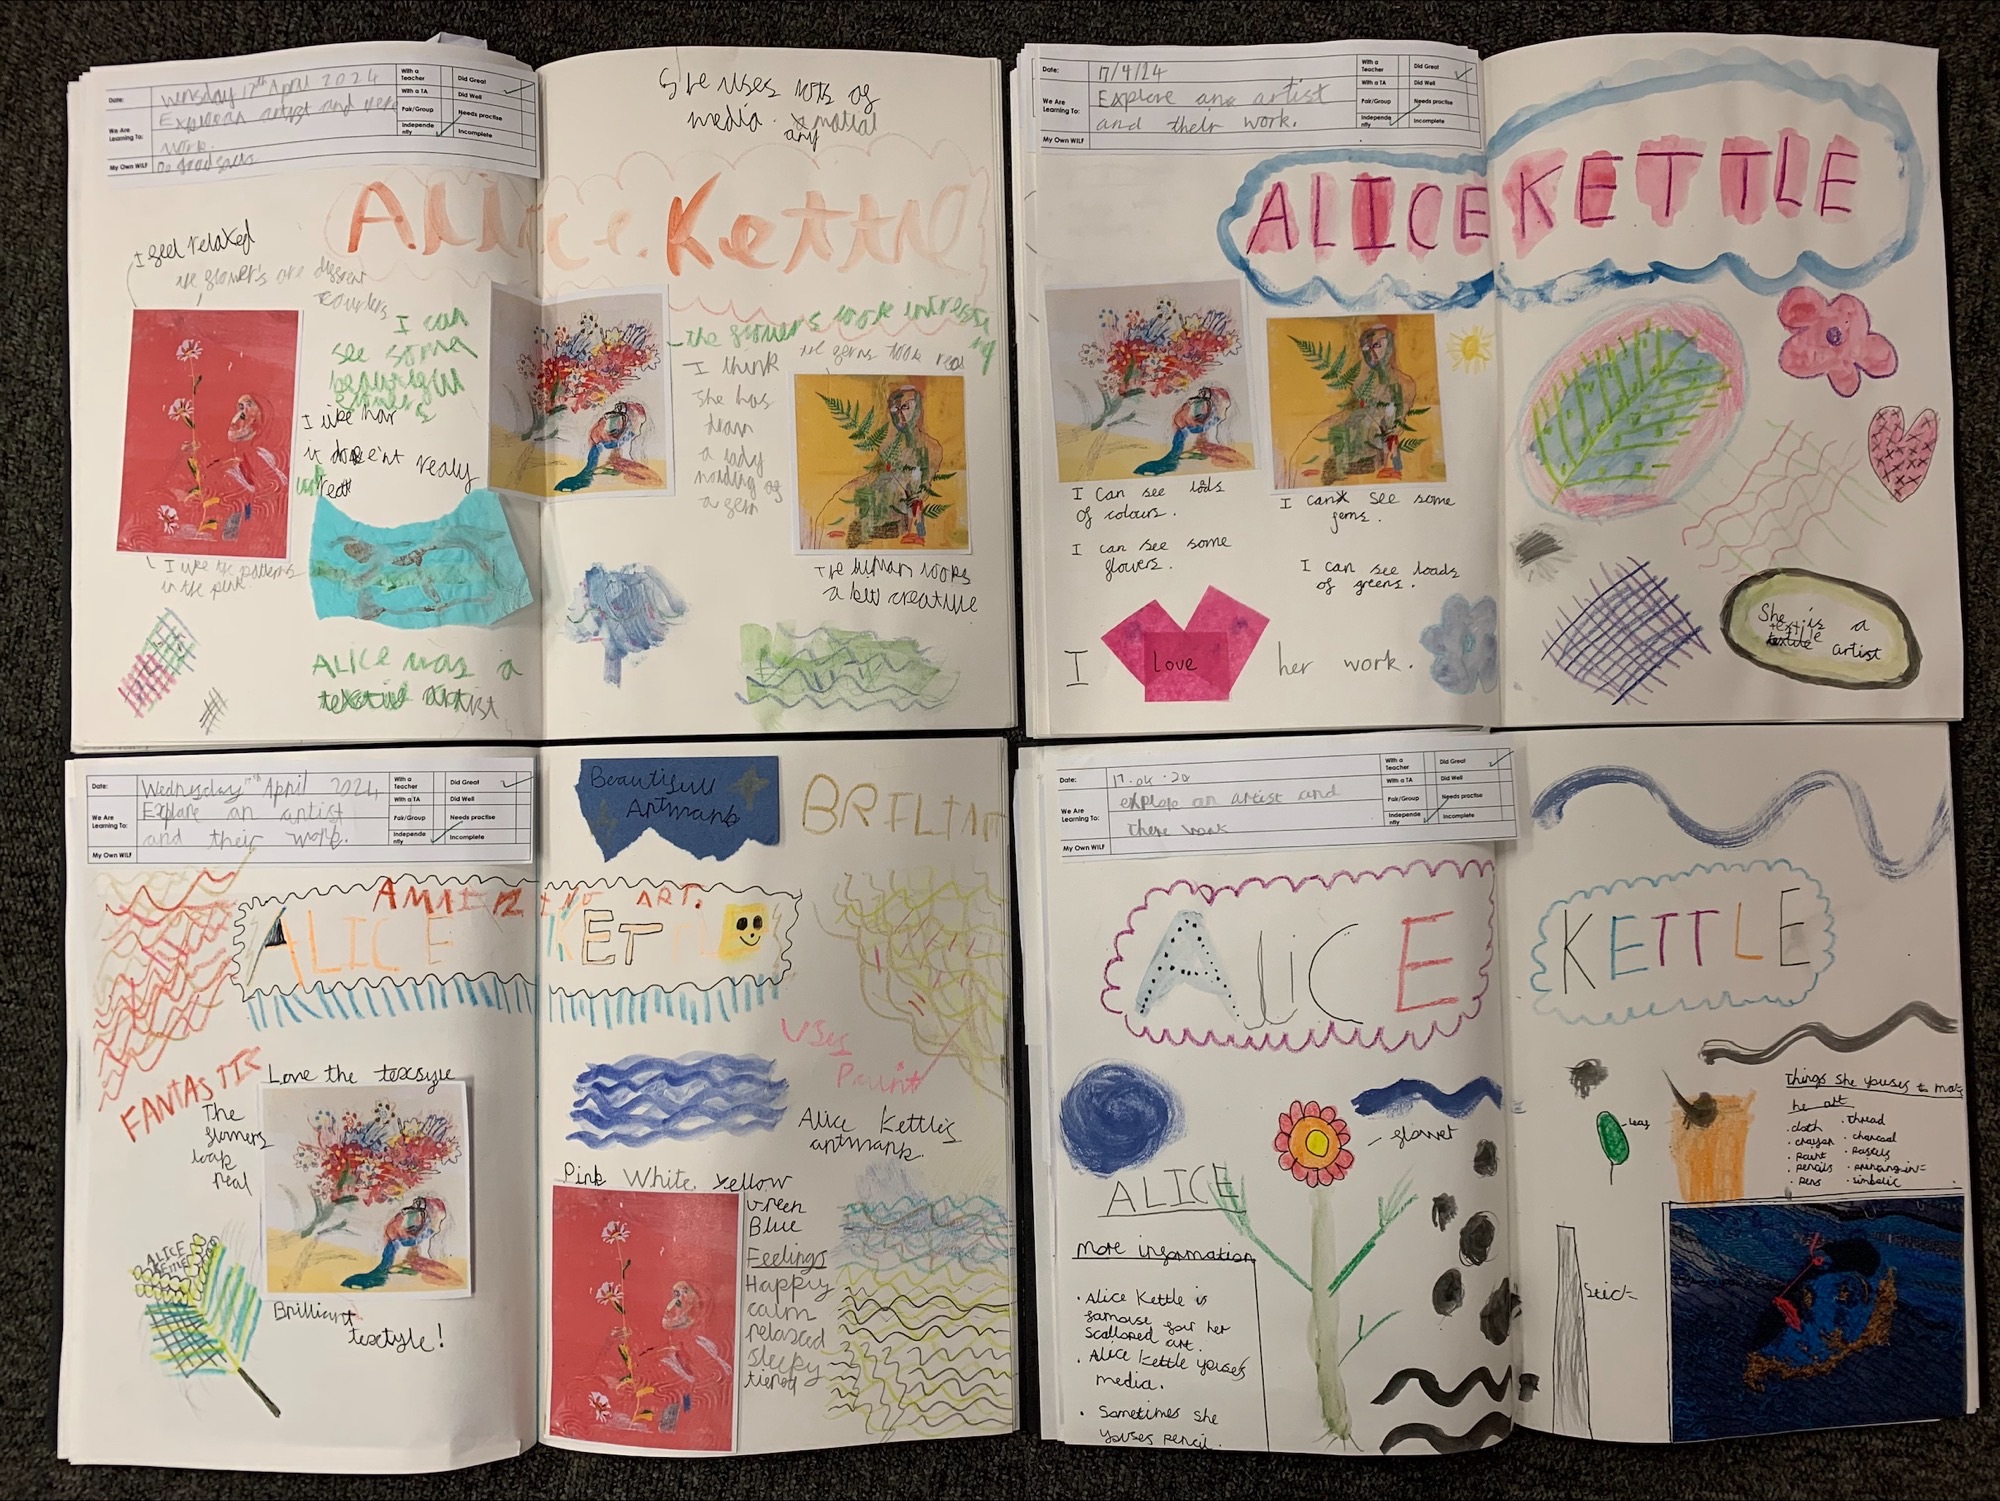 Date:
Wensday 17th April 2024
We Are Learning To:
artist and
work.
My Own WILF
With a Teacher
Did Great
With a TA
Did Well
Pair/Group
Needs practise
Independently
Incomplete
She uses lots of
media.
any
Alice Kettle
I feel relaxed
the flowers are
I can
see some
I like how
it
realy
I like the patterns
in the
ALICE was a
artist
the flowers look interesting
I think
she has
a lady
holding
a fern
the ferns look real
the human looks
a bit creature
Date:
17/4/24
We Are Learning To:
Explore and artist
and their work.
My Own WILF
With a Teacher
Did Great
With a TA
Did Well
Pair/Group
Needs practise
Independently
Incomplete
ALICE KETTLE
I can see lods
of colours.
I can see some
flowers.
I can see some
ferns.
I can see loads
of greens.
I love her work.
She is a
textile artist
Date:
Wednesday 17th April 2024
We Are Learning To:
Explore an artist
and their work.
My Own WILF
With a Teacher
Did Great
With a TA
Did Well
Pair/Group
Needs practise
Independently
Incomplete
Beautifull
Artmank
BRILIANT
ART.
ALICE KETTLE
FANTASTIC
Love the texsyle
The
flowers
look
real
ALICE
KETTLE
Brilliant
texstyle!
Uses
Paint
Alice Kettles
artmank.
Pink White yellow
Green
Blue
Feelings
Happy
calm
relaxed
sleepy
tierod
Date:
We Are Learning To:
explore an artist and
there work
My Own WILF
With a Teacher
Did Great
With a TA
Did Well
Pair/Group
Needs practise
Independently
Incomplete
ALiCE
KETTLE
ALICE
flower
leaf
More information
· Alice Kettle is
famouse for her
scalloped art.
· Alice Kettle youses
media.
· Sometimes she
youses pencil.
Things she youses to make
he art
· cloth
· crayon
· paint
· pencils
· pens
· thread
· charcoal
· pastels